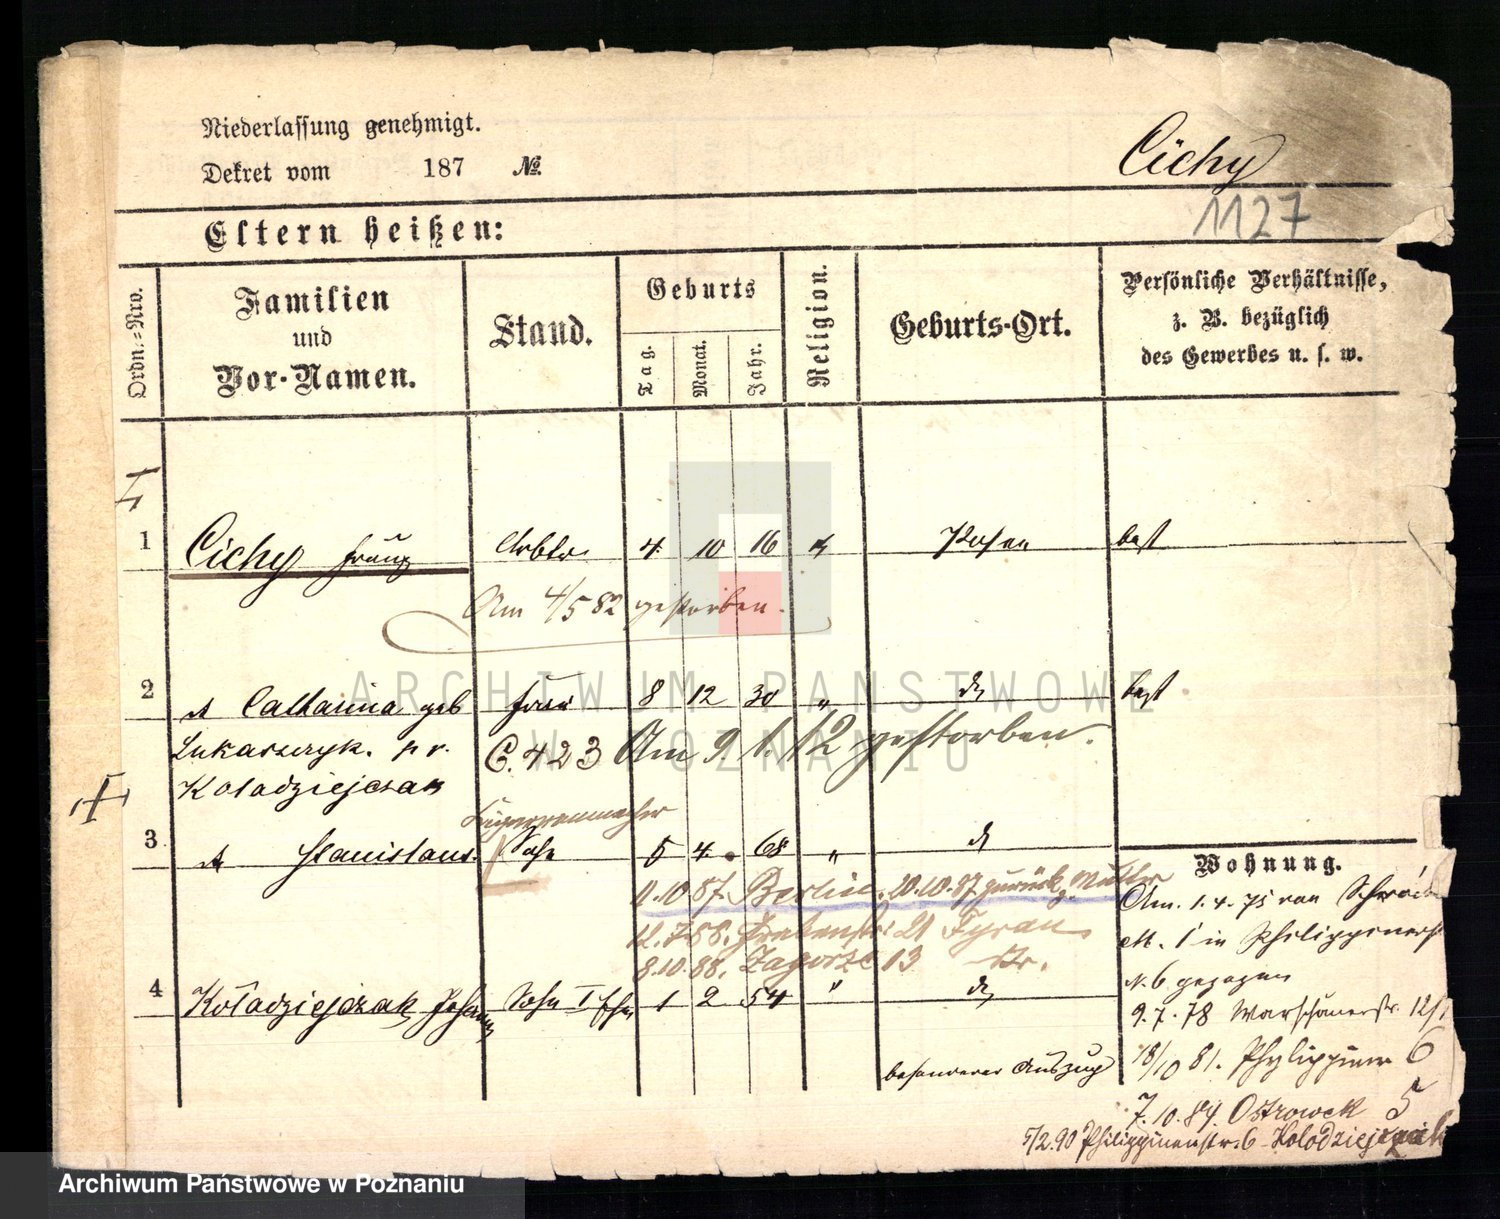 Niederlassung genehmigt.
Dekret vom 187 №
Cichy
1127
Eltern heißen:
Ordn.=Nro.
Familien
und
Vor-Namen.
Stand.
Geburts
Tag.
Monat.
Jahr.
Religion.
Geburts-Ort.
Persönliche Verhältnisse,
z. B. bezüglich
des Gewerbes u. s. w.
1 Cichy Franz Arbtr. 4 10 16 Posen
Am 4/5 82 gestorben.
2 Catharina geb Frau 8 12 30 "
Lukaszczyk. C. 423 Am 9. 1. 12 gestorben.
Kolodziejczak
Zigarrenmacher
3 Stanislaus. Sohn 5 4. 68 "
Wohnung.
11.10.87. Berlin. 20.10.87 zurück z. Mutter
12.7.88. Grabenstr. 21
8.10.88. Zagorze 13
4 Kołodziejczak Johann Sohn I Ehe 1 2 54 "
besonderer Auszug
Am. 1. 4. 75 von
in Philippinenstr
N. 6 gezogen
9. 7. 78 Warschauerstr.
18/10 81. Phylippiner 6
7. 10. 84. Ostrowek 5
5/2. 90 Philippinenstr. 6 Kolodziejczak
ARCHIWUM PAŃSTWOWE
W POZNANIU
Archiwum Państwowe w Poznaniu